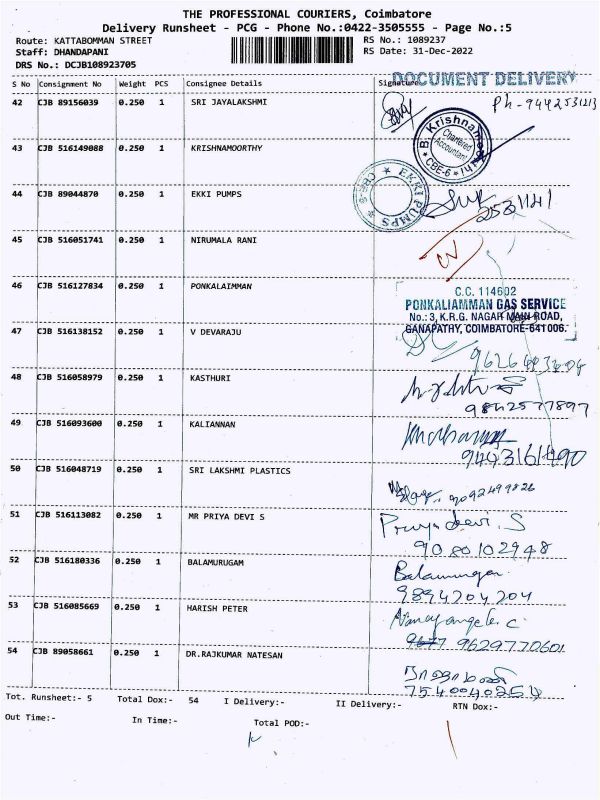 THE PROFESSIONAL COURIERS, Coimbatore
Delivery Runsheet - PCG - Phone No.:0422-3505555 - Page No.:5
Route: KATTABOMMAN STREET RS No.: 1089237
Staff: DHANDAPANI RS Date: 31-Dec-2022
DRS No.: DCJB108923705
DOCUMENT DELIVERY
S No Consignment No Weight PCS Consignee Details Signature
42 CJB 89156039 0.250 1 SRI JAYALAKSHMI Ph-9442531213
B. Krishnamoorthy
Chartered Accountant
* CBE-6 *
43 CJB 516149088 0.250 1 KRISHNAMOORTHY
EKKI PUMPS * CBE-6 *
44 CJB 89044870 0.250 1 EKKI PUMPS
2531141
45 CJB 516051741 0.250 1 NIRUMALA RANI
46 CJB 516127834 0.250 1 PONKALAIMMAN
C.C. 114602
PONKALIAMMAN GAS SERVICE
No.: 3, K.R.G. NAGAR MAIN ROAD,
GANAPATHY, COIMBATORE-641006.
47 CJB 516138152 0.250 1 V DEVARAJU
48 CJB 516058979 0.250 1 KASTHURI
9842577897
49 CJB 516093600 0.250 1 KALIANNAN
50 CJB 516048719 0.250 1 SRI LAKSHMI PLASTICS
9092499826
51 CJB 516113082 0.250 1 MR PRIYA DEVI S Priya devi. S
9080102948
52 CJB 516180336 0.250 1 BALAMURUGAM Balamurugan
9894204204
53 CJB 516085669 0.250 1 HARISH PETER
9629770601
54 CJB 89058661 0.250 1 DR.RAJKUMAR NATESAN
7540040254
Tot. Runsheet:- 5 Total Dox:- 54 I Delivery:- II Delivery:- RTN Dox:-
Out Time:- In Time:- Total POD:-